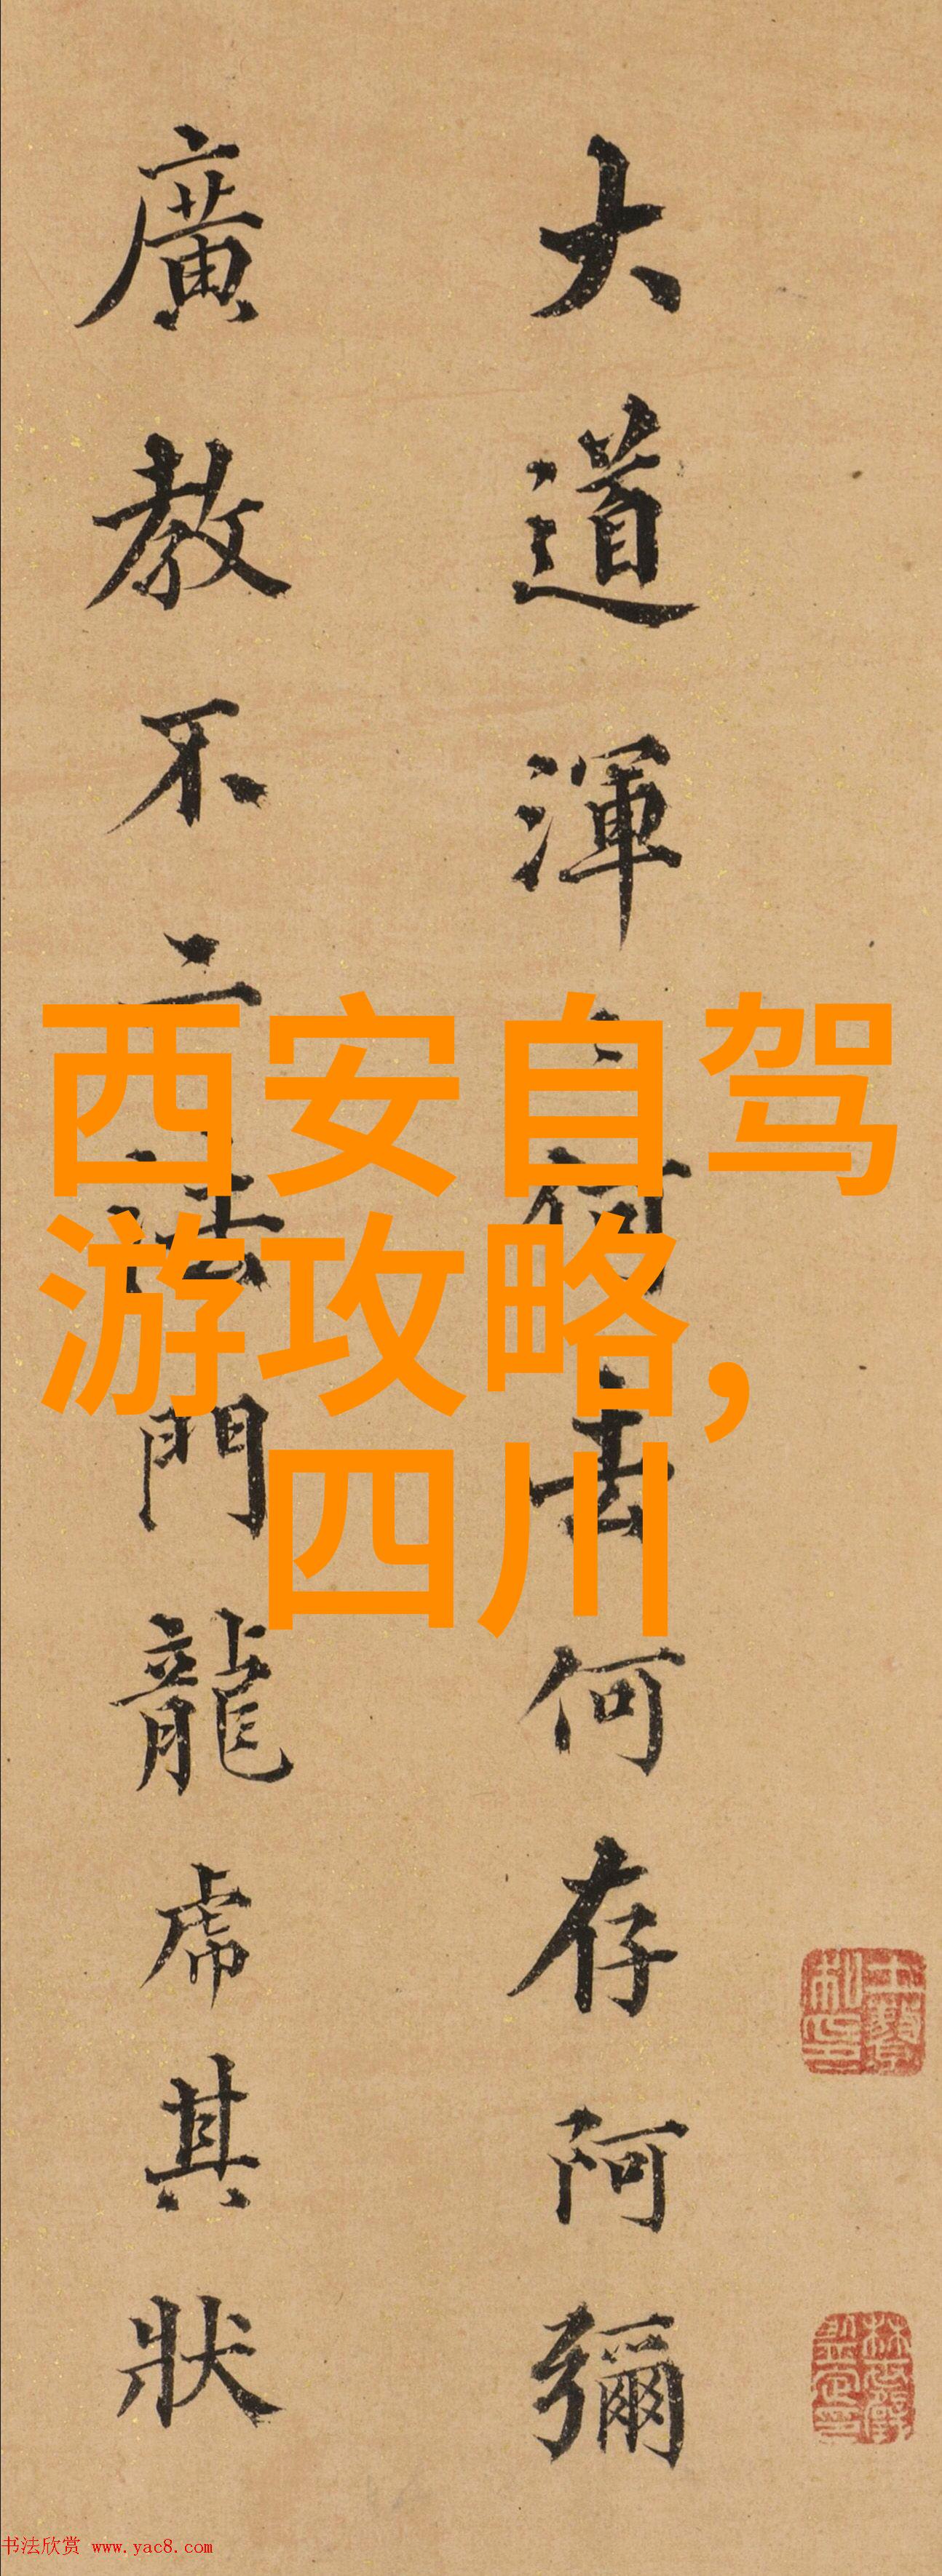 大道渾何去何存阿彌
廣教不二法門龍虎其狀
西安自驾
游攻略，
四川
书法欣赏 www.yac8.com